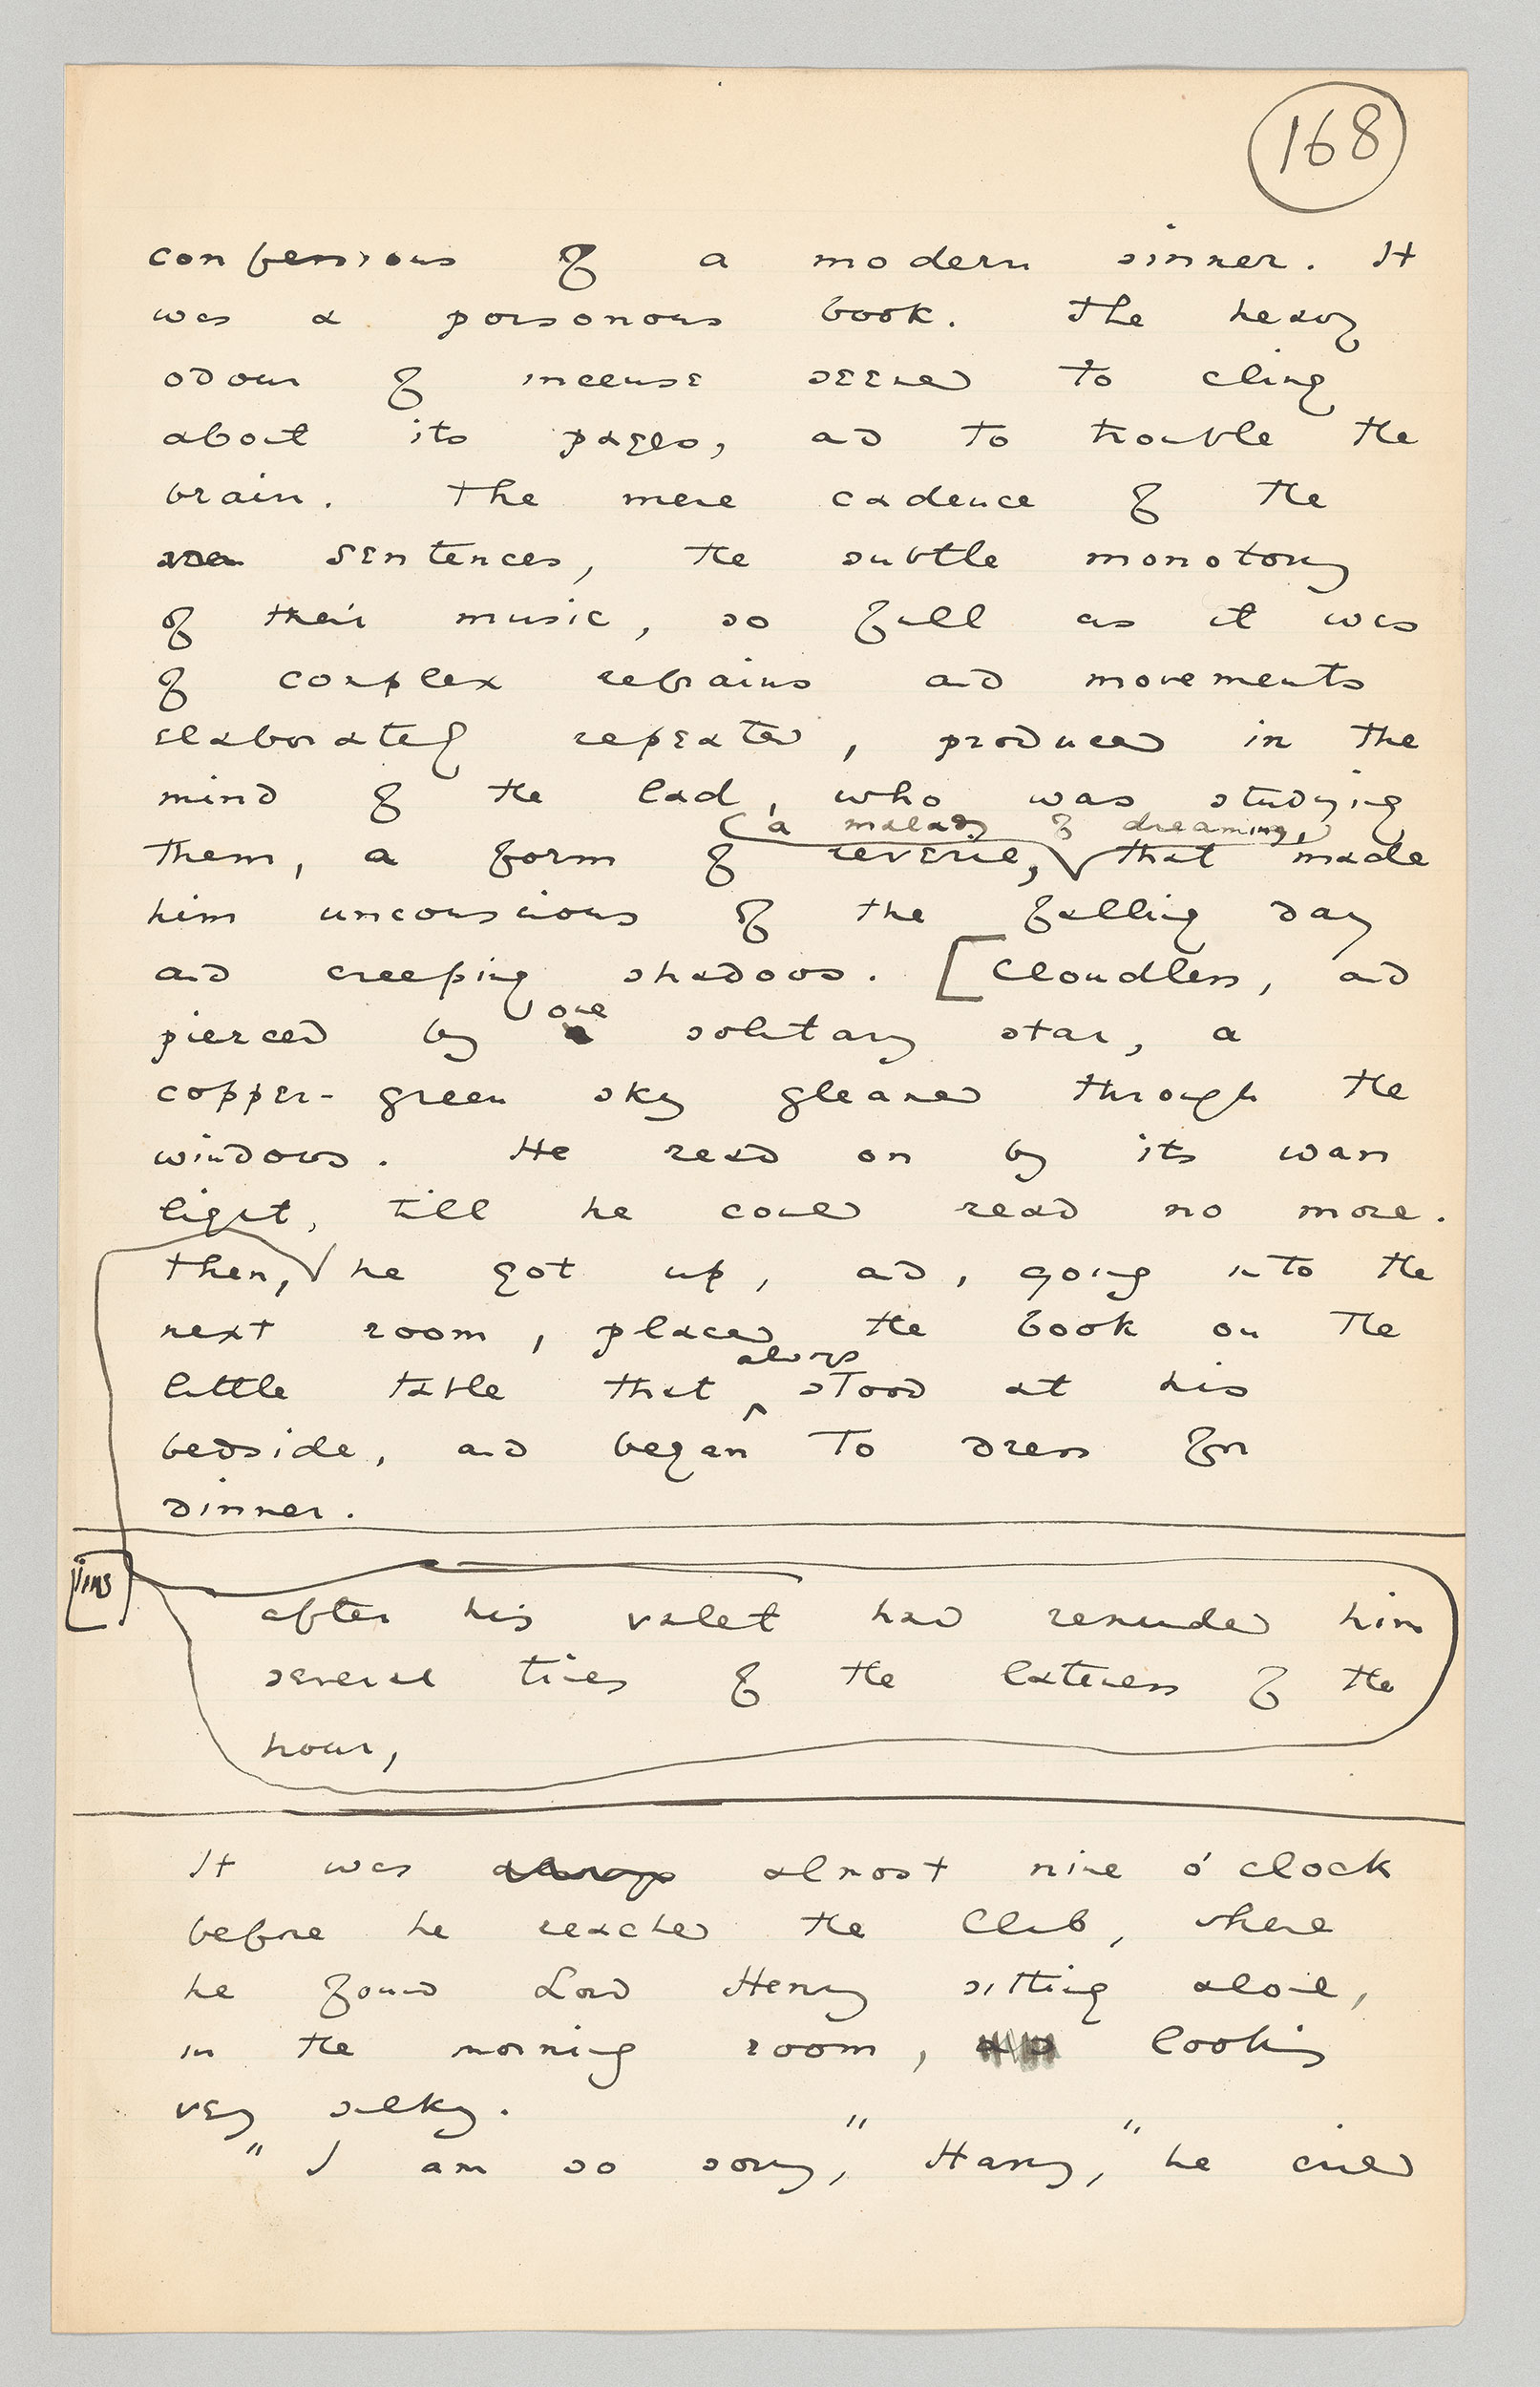 168
confessions of a modern sinner. It
was a poisonous book. The heavy
odour of incense seemed to cling
about its pages, and to trouble the
brain. The mere cadence of the
sentences, the subtle monotony
of their music, so full as it was
of complex refrains and movements
elaborately repeated, produced in the
mind of the lad, who was studying
a malady of dreaming,
them, a form of reverie, that made
him unconscious of the falling day
and creeping shadows. [Cloudless, and
one
pierced by solitary star, a
copper-green sky gleamed through the
windows. He read on by its wan
light, till he could read no more.
Then, he got up, and, going into the
next room, placed the book on the
always
little table that stood at his
bedside, and began to dress for
dinner.
ins
after his valet had reminded him
several times of the lateness of the
hour,
It was always almost nine o'clock
before he reached the Club, where
he found Lord Henry sitting alone,
in the morning room, looking
very sulky.
"I am so sorry, "Harry," he cried